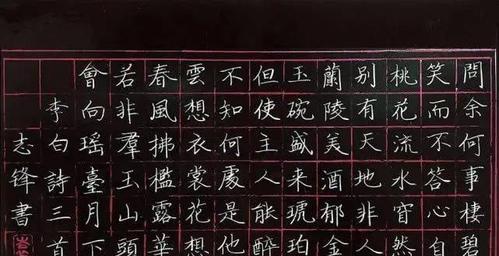 問余何事棲碧
笑而不答心自
桃花流水窅然
别有天地非人
蘭陵美酒郁金
玉碗盛来琥珀
但使主人能醉
不知何處是他
雲想衣裳花想
春風拂檻露華
若非羣玉山頭
會向瑶臺月下
李白詩三首
志锋書